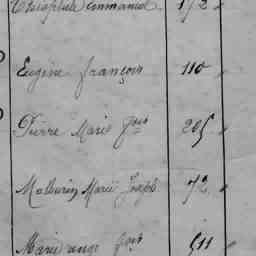 Théophile Emmanuel 172 "
Eugène françois 110 "
Pierre Marie fois 205 "
Mathurin Marie Joseph 72 "
Marie ange fois 511 "